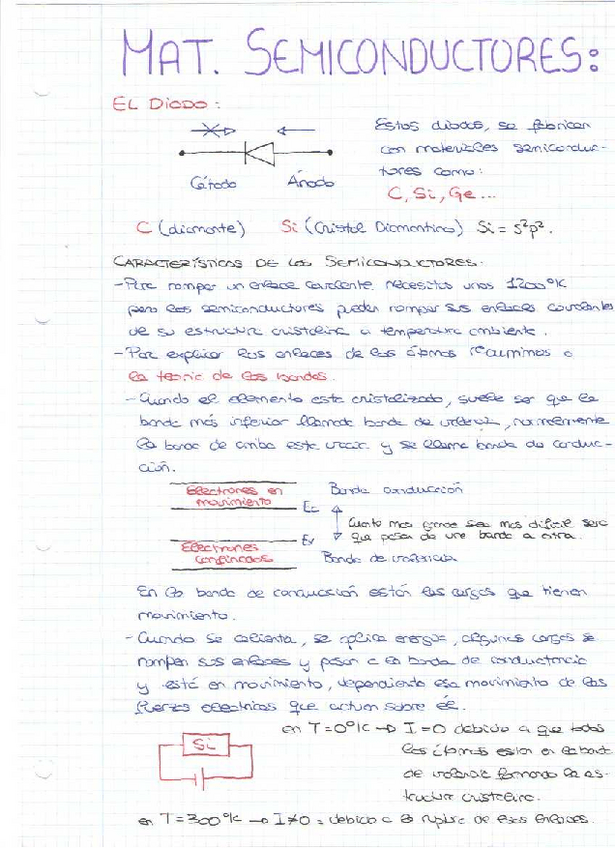 MAT. SEMICONDUCTORES:
EL DIODO:
Estos diodos, se fabrican
con materiales semiconduc-
tores como:
C, Si, Ge...
Cátodo Ánodo
C (diamante) Si (Cristal Diamantino) Si = s²p².
CARACTERÍSTICAS DE LOS SEMICONDUCTORES.
- Para romper un enlace covalente necesitas unos 1200°K
pero los semiconductores pueden romper sus enlaces covalentes
de su estructura cristalina a temperatura ambiente.
- Par explicar los enlaces de los átomos recurrimos a
la teoria de las bandas.
- Cuando el elemento esta cristalizado, suele ser que la
banda más inferior llamada banda de valencia, normalmente
la banda de arriba esta vacia y se llama banda de conduc-
ción.
Electrones en
movimiento
Banda conducción
Ec
Cuanto mas grande sea mas dificil sera
que pasen de una banda a otra.
Ev
Electrones
confinados
Banda de valencia
En la banda de conducción están las cargas que tienen
movimiento.
- Cuando se calienta, se aplica energía, algunas cargas se
rompen sus enlaces y pasan a la banda de conductancia
y está en movimiento, dependiento ese movimiento de las
fuerzas electricas que actuan sobre él.
en T=0°K → I=0 debido a que todos
los átomos estan en la banda
de valencia formando la es-
tructura cristalina.
Si
en T=300°K → I≠0 = debido a la ruptura de esos enlaces.